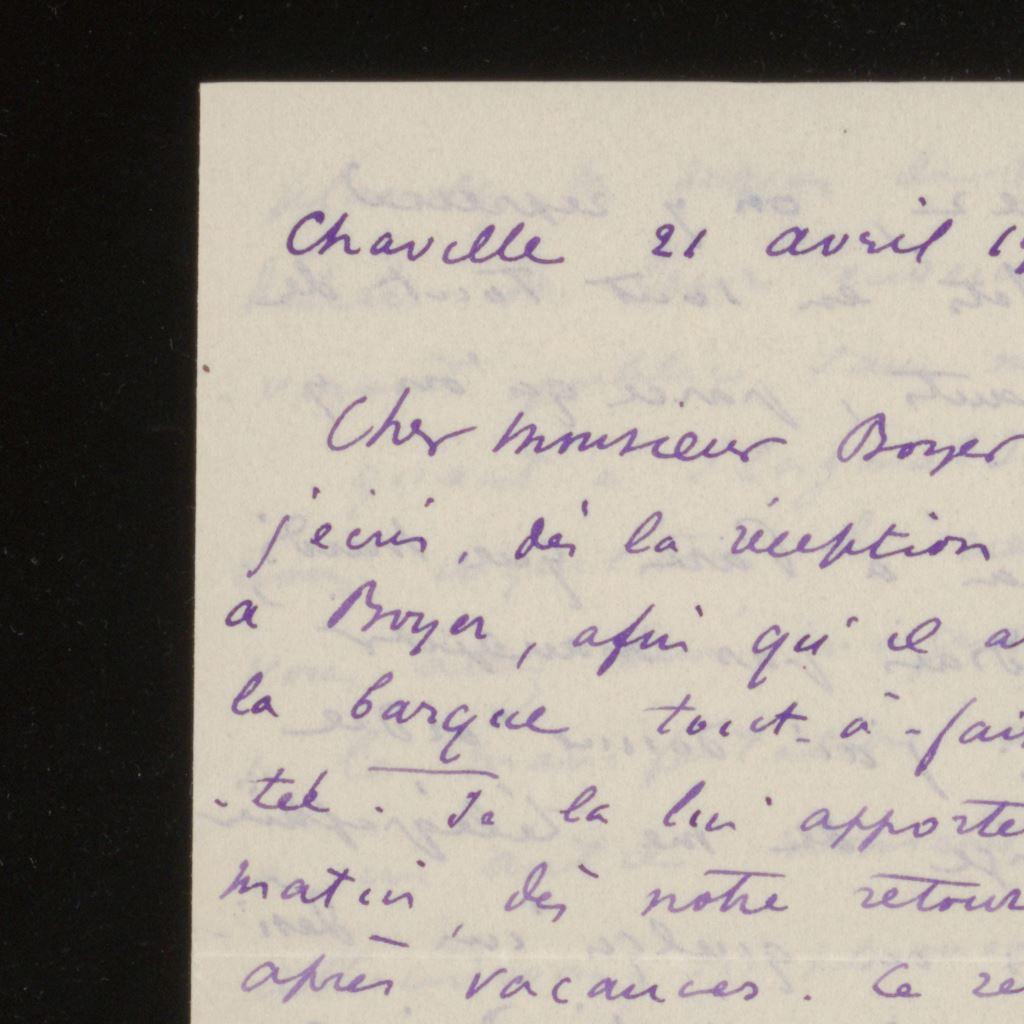 Chaville 21 avril 19
Cher Monsieur Boyer
j'écris, dès la réception
a Boyer, afin qu'il a
la barque tout-à-fait
-tel. Je la lui apporte
matin, dès notre retour
après vacances. Ce re